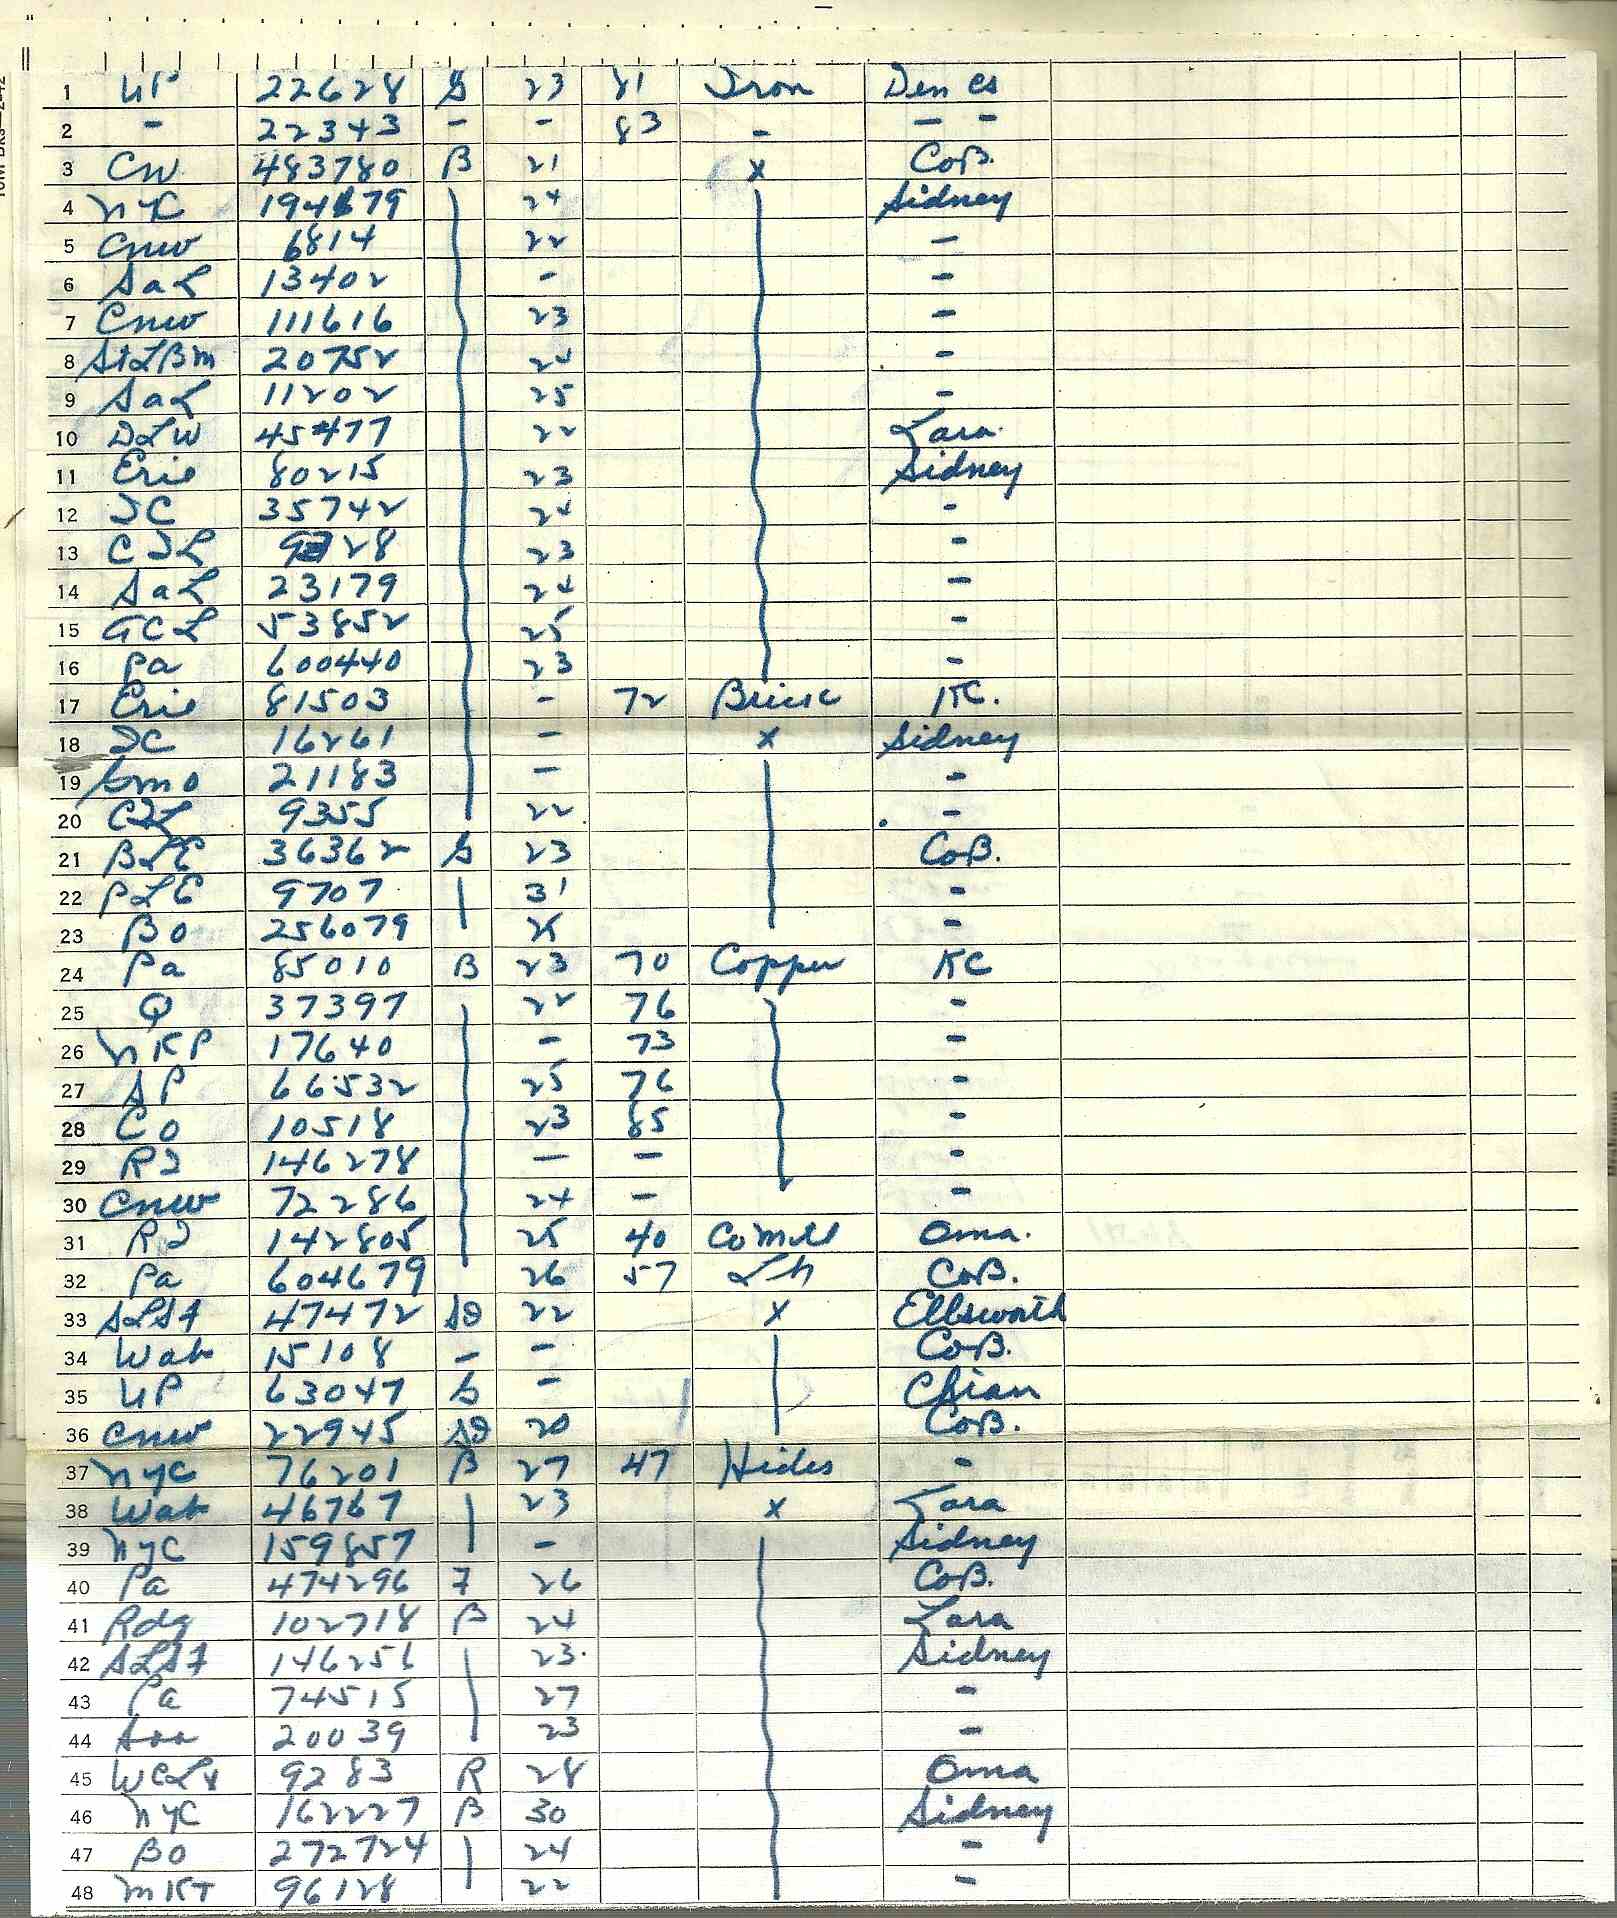 1 UP 22628 G 23 81 Iron Den Cs
2 - 22343 - - 83 - - -
3 CW 483780 B 21 x CoB.
4 NYC 194679 24 Sidney
5 CNW 6814 22 -
6 SaL 13402 - -
7 CNW 111616 23 -
8 StLBM 20752 24 -
9 SaL 11202 25 -
10 DLW 45477 22 Lara.
11 Erie 80215 23 Sidney
12 IC 35742 24 -
13 CIL 9728 23 -
14 SaL 23179 24 -
15 ACL 53852 25 -
16 Pa 600440 23 -
17 Erie 81503 - 72 Brick KC.
18 IC 16261 - x Sidney
19 GMO 21183 - -
20 CIL 9355 22 -
21 BLE 36362 G 23 CoB.
22 PLE 9707 31 -
23 BO 256079 25 -
24 Pa 85010 B 23 70 Copper KC
25 Q 37397 22 76 -
26 NKP 17640 - 73 -
27 SP 66532 25 76 -
28 CO 10518 23 85 -
29 RI 146278 - - -
30 CNW 72286 24 - -
31 RI 142805 25 40 Co Mdl Oma.
32 Pa 604679 26 57 Lh CoB.
33 SLSF 47472 SD 22 x Ellsworth
34 Wab 15108 - - CoB.
35 UP 63047 G - Chian
36 CNW 22945 SD 20 CoB.
37 NYC 76201 B 27 47 Hides -
38 Wab 46767 23 x Lara
39 NYC 159857 - Sidney
40 Pa 474296 F 26 CoB.
41 Rdg 102718 B 24 Lara
42 SLSF 146256 23. Sidney
43 Pa 74515 27 -
44 Soo 20039 23 -
45 WCLX 9283 R 28 Oma
46 NYC 162227 B 30 Sidney
47 BO 272724 24 -
48 MKT 96128 22 -